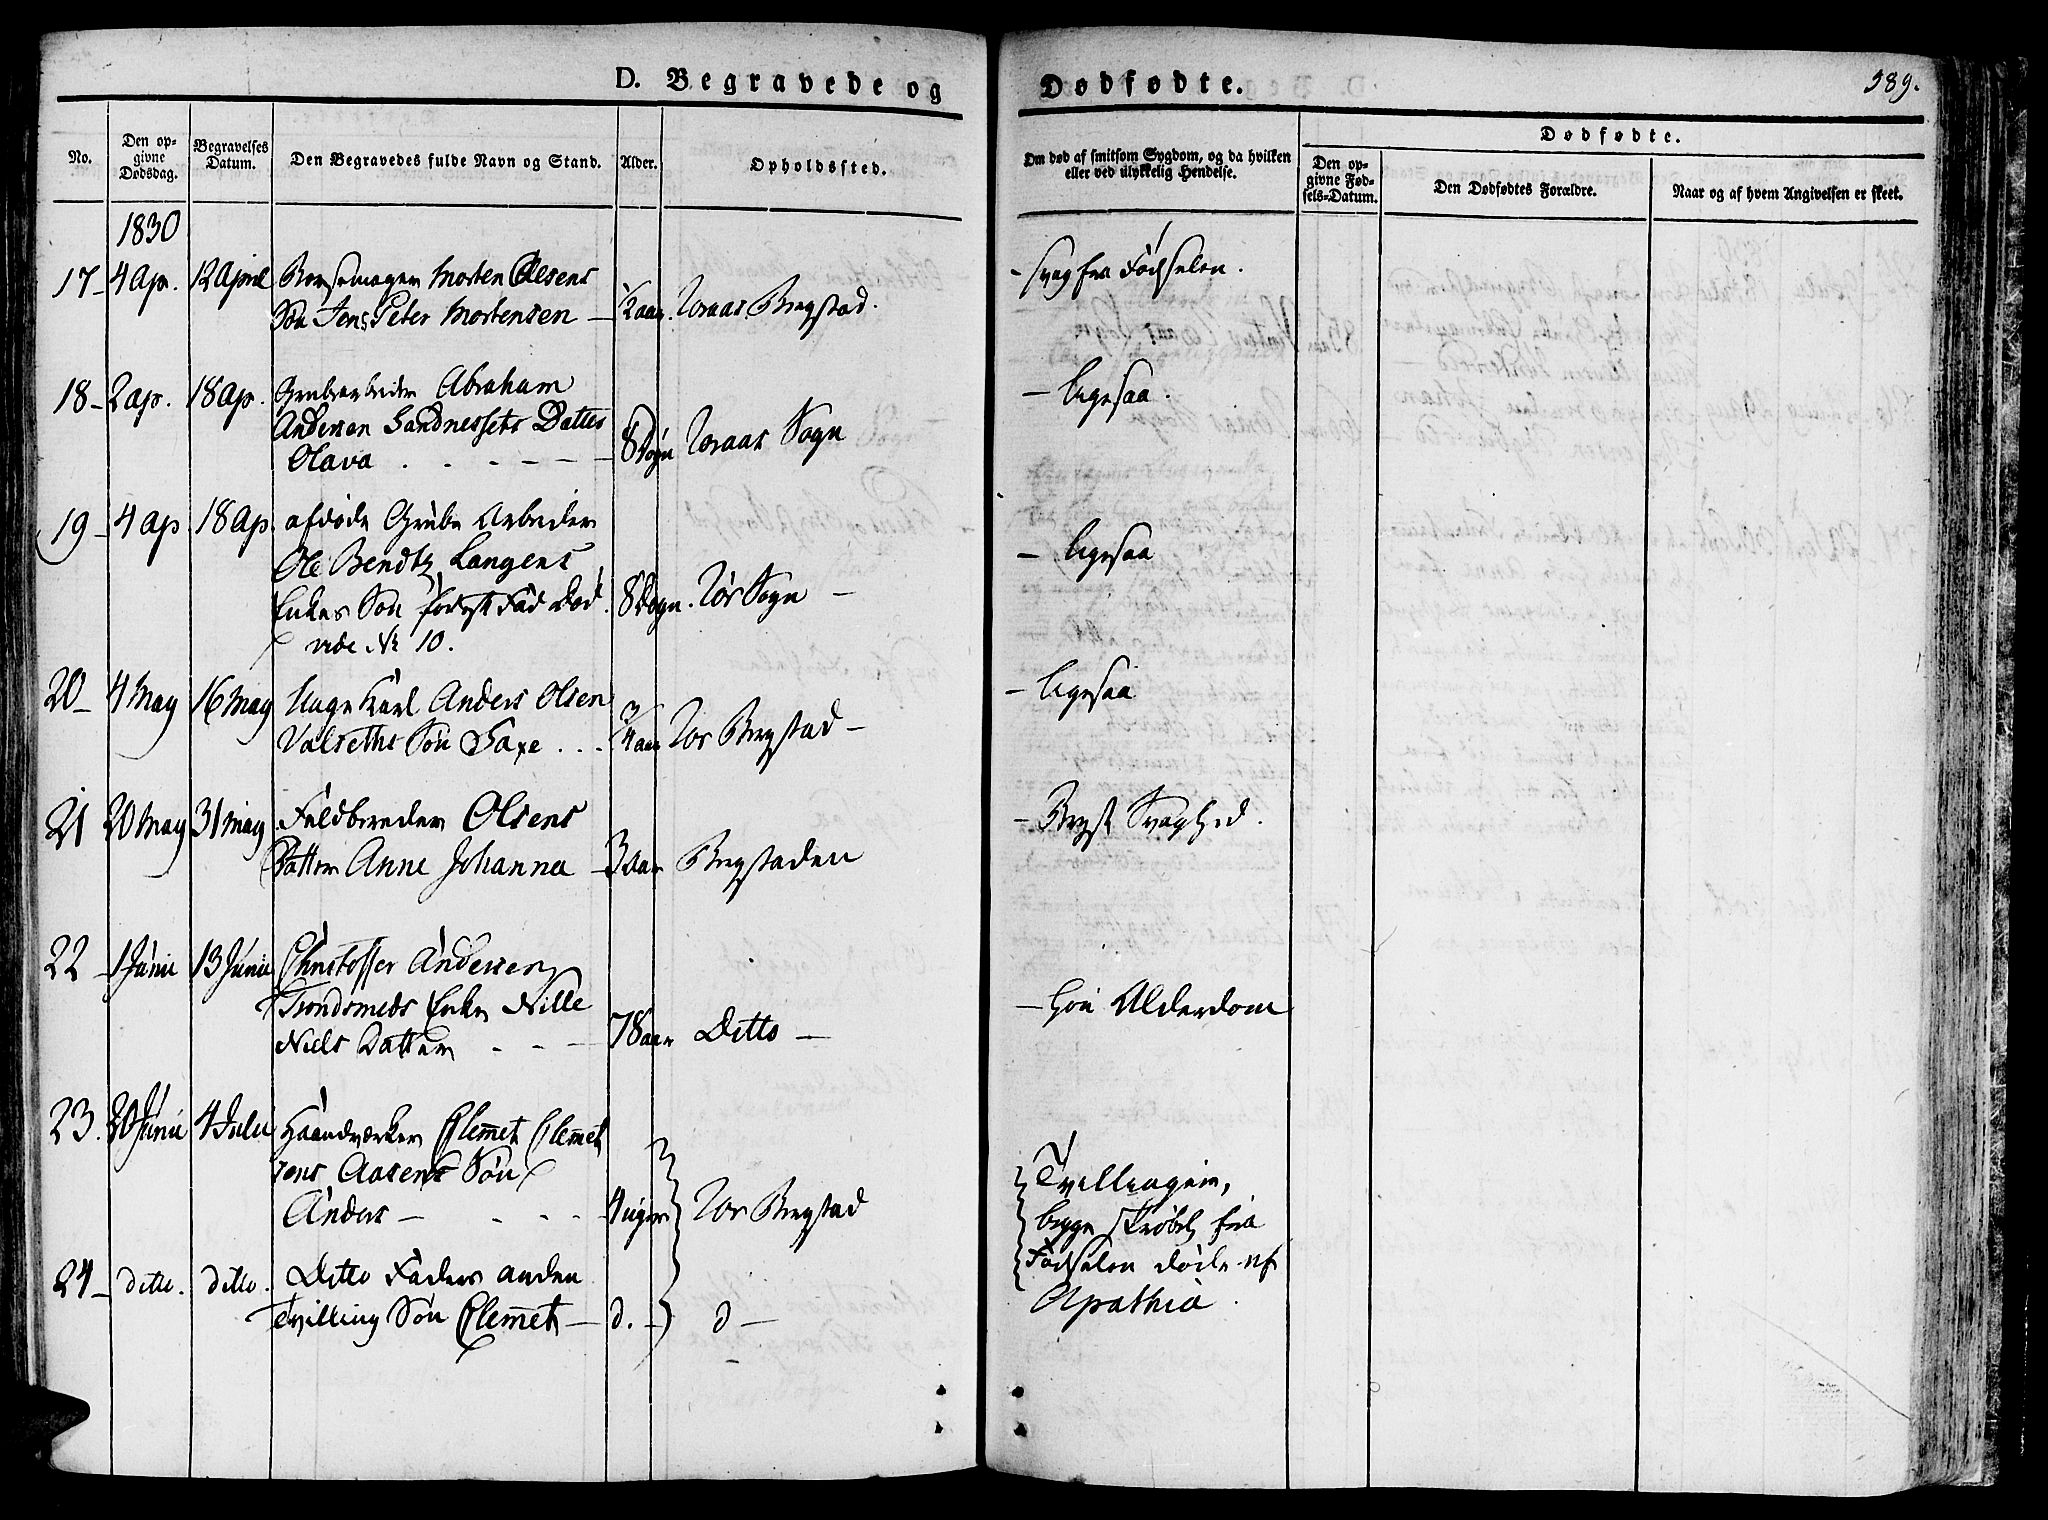 D. Begravede og Dødfødte.
389.
No.
Den opgivne Dødsdag.
Begravelses Datum.
Den Begravedes fulde Navn og Stand.
Alder.
Opholdssted.
Om død af smitsom Sygdom, og da hvilken
eller ved ulykkelig Hendelse.
Dødfødte.
Den opgivne Fødsels-Datum.
Den Dødfødtes Forældre.
Naar og af hvem Angivelsen er skeet.
1830
17 - 4 Ap. 12 April Morten Olsens - svag fra Fødselen.
Søn Jens Peter Mortensen - 1/2 aar. Bergstad.
18 - 2 ap. 18 ap. Grubearbeider Abraham - ligesaa.
Andersen Sandnessets Datter
Olava - 8 Døgn Sogn
19 - 4 ap 18 ap. afdøde Grube Arbeider - ligesaa
Ole Bendtz Langens
Enkes Søn født Død. 8 Døgn. Rør Sogn -
vide No 10.
20 - 4 May 16 May Unge Karl Anders Olsen - ligesaa
Valseths Søn Saxe - 3/4 aar Bergstad -
21 20 May 31 May Feldbereder Olsens - Bryst Svaghed.
Datter Anne Johanna - 3 Aar Bergstaden
22 - 1 Junii 13 Junii Christoffer Andersen
Trondsmeds Enke Nille - høi Alderdom
Niels Datter - 78 aar Ditto -
23. 20 Junii 4 Julii Haandværker Clemmet Clemmet
sens Aasens Søn
Anders - 4 uger Bergstad
Tvillinger,
begge skrøbel. fra
Fødselen døde af
Apathia.
24 - ditto. ditto. Ditto Faders anden
Tvilling Søn Clemmet - d. - d -